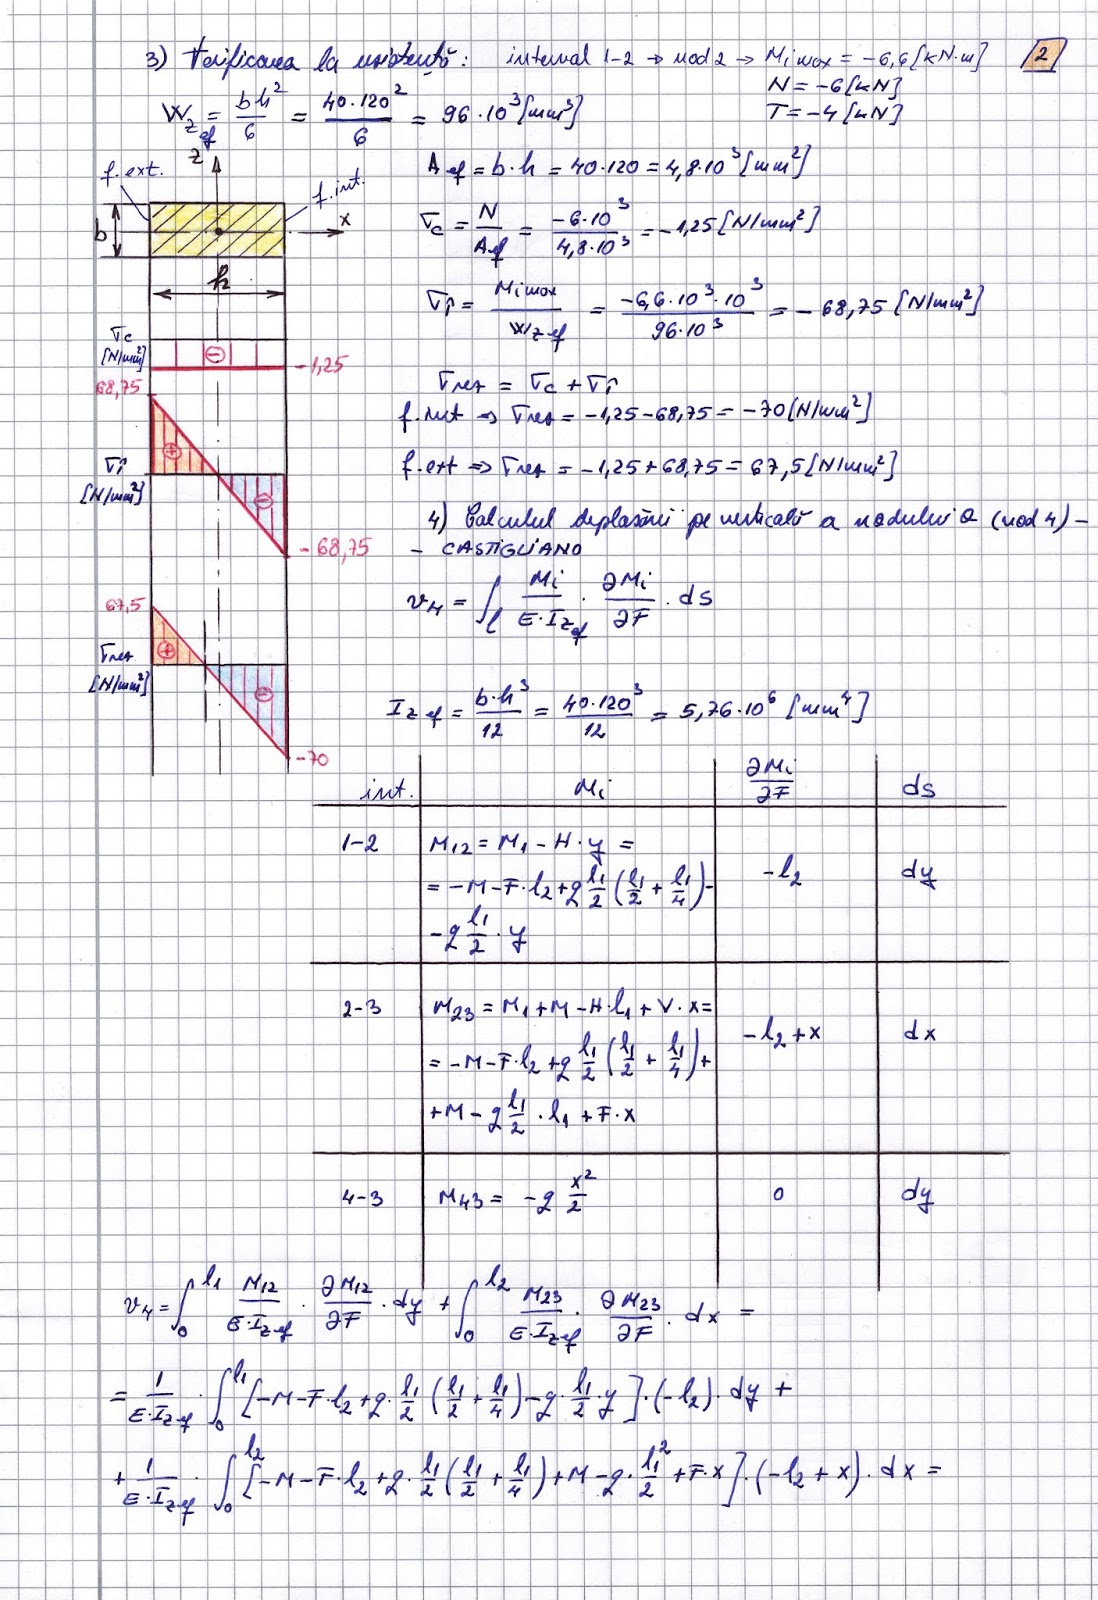 3) Verificarea la rezistență: interval 1-2 → nod 2 → Mi max = -6,6 [kN·m]
2
N = -6 [kN]
T = -4 [kN]
Wz ef = bh²/6 = 40·120²/6 = 96·10³ [mm³]
A ef = b·h = 40·120 = 4,8·10³ [mm²]
z
f. ext.
f. int.
x
b
h
σc = N/A ef = -6·10³/4,8·10³ = -1,25 [N/mm²]
σî = Mi max/Wz ef = -6,6·10³·10³/96·10³ = -68,75 [N/mm²]
σc [N/mm²]
-1,25
68,75
σî [N/mm²]
-68,75
67,5
σrez [N/mm²]
-70
σrez = σc + σî
f. int ⇒ σrez = -1,25-68,75 = -70 [N/mm²]
f. ext ⇒ σrez = -1,25+68,75 = 67,5 [N/mm²]
4) Calculul deplasării pe verticală a nodului (nod 4) -
- CASTIGLIANO
v4 = ∫l Mi/(E·Iz ef) · ∂Mi/∂F · ds
Iz ef = b·h³/12 = 40·120³/12 = 5,76·10⁶ [mm⁴]
int. Mi ∂Mi/∂F ds
1-2 M12 = M1 - H·y = -l2 dy
= -M-F·l2+q l1/2 (l1/2 + l1/4) -
- q l1/2 · y
2-3 M23 = M1 + M - H·l1 + V·x = -l2+x dx
= -M-F·l2+q l1/2 (l1/2 + l1/4) +
+M - q l1/2 · l1 + F·x
4-3 M43 = -q x²/2 0 dy
v4 = ∫0^l1 M12/(E·Iz ef) · ∂M12/∂F · dy + ∫0^l2 M23/(E·Iz ef) · ∂M23/∂F · dx =
= 1/(E·Iz ef) · ∫0^l1 [-M-F·l2+q· l1/2 (l1/2 + l1/4) - q· l1/2 ·y]·(-l2)·dy +
+ 1/(E·Iz ef) · ∫0^l2 [-M-F·l2+q· l1/2 (l1/2 + l1/4) + M - q· l1²/2 + F·x]·(-l2+x)·dx =